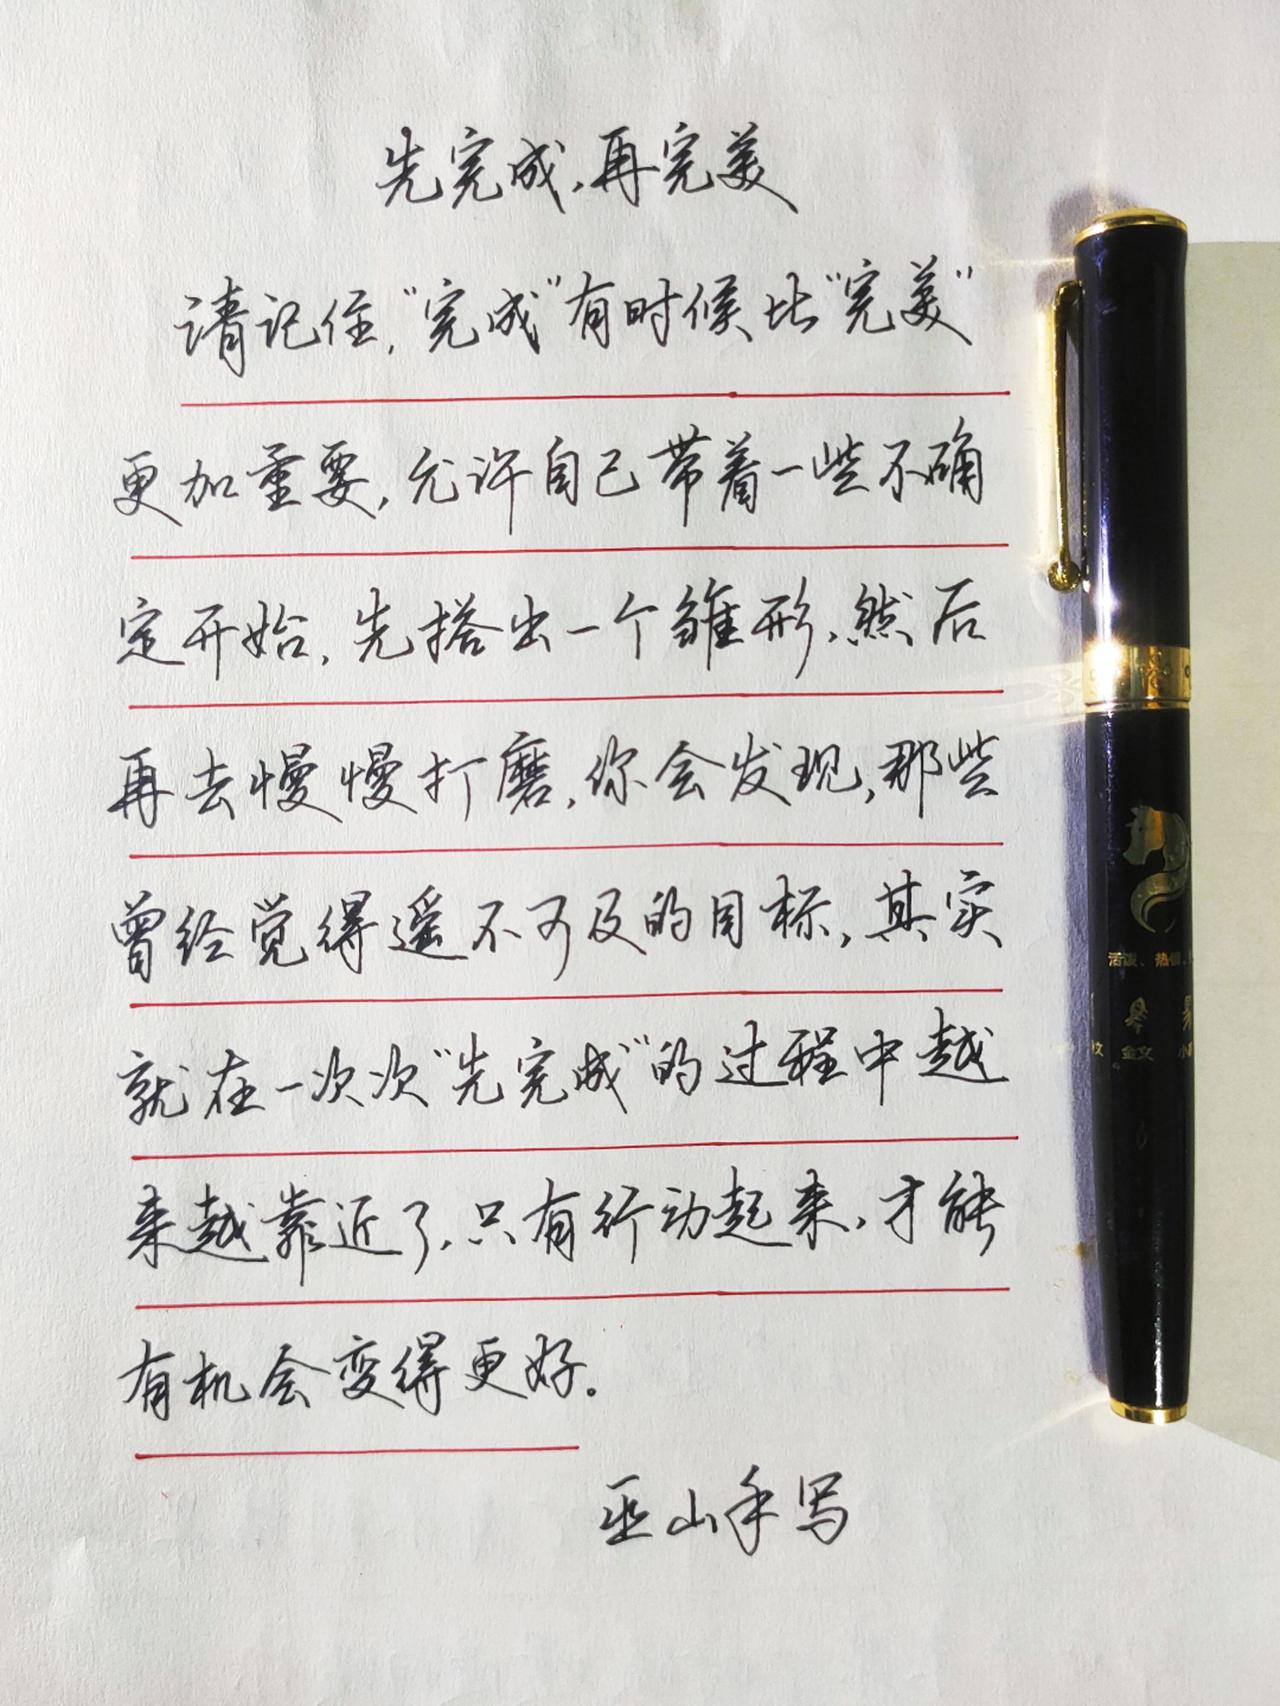 先完成,再完美
请记住,“完成”有时候比“完美”
更加重要,允许自己带着一些不确
定开始,先搭出一个雏形,然后
再去慢慢打磨,你会发现,那些
曾经觉得遥不可及的目标,其实
就在一次次“先完成”的过程中越
来越靠近了,只有行动起来,才能
有机会变得更好。
巫山手写
活泼、热情、
金文
小